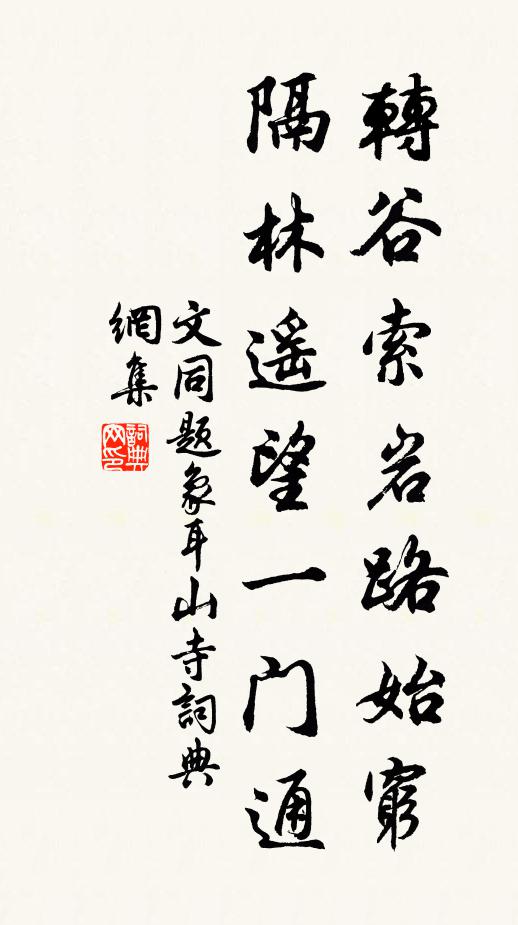 轉谷索岩路始窮
隔林遥望一门通
文同題象耳山寺詞典
網集
詞典网印